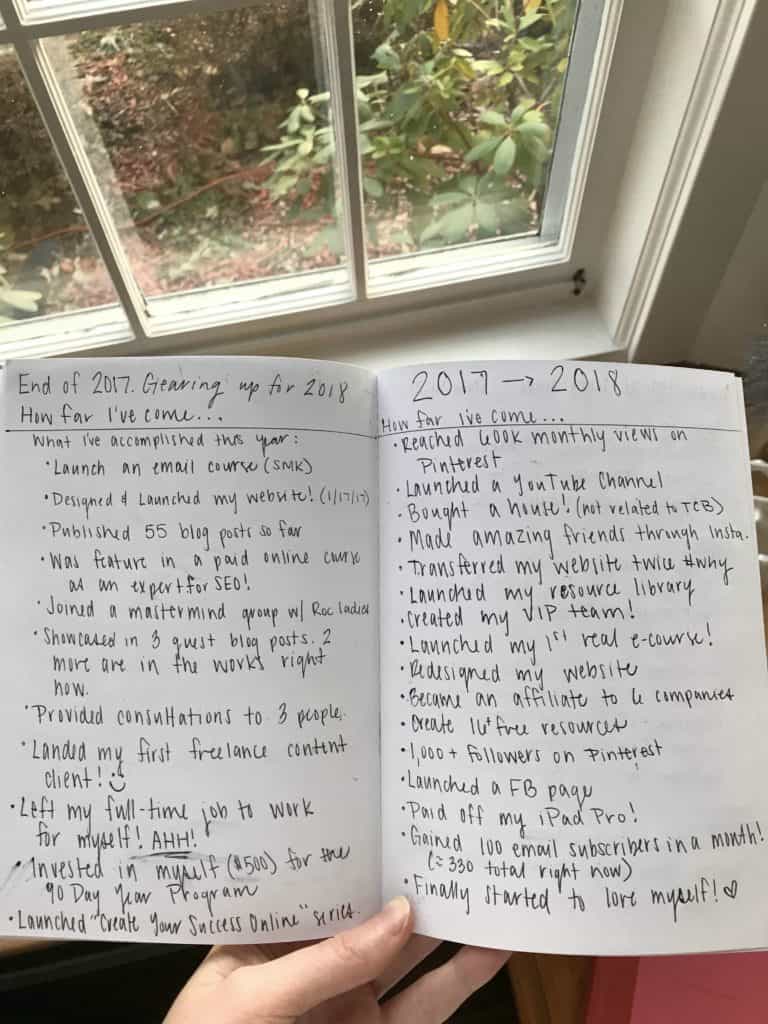 End of 2017. Gearing up for 2018
How far I've come...
What I've accomplished this year:
• Launch an email course (SMK)
• Designed & Launched my website! (1/17/17)
• Published 55 blog posts so far
• Was feature in a paid online course
as an expert for SEO!
• Joined a mastermind group w/ Roc ladies
• Showcased in 3 guest blog posts. 2
more are in the works right
now.
• Provided consultations to 3 people.
• Landed my first freelance content
client!
• Left my full-time job to work
for myself! AHH!
• Invested in myself ($500) for the
90 Day Year Program
• Launched "Create Your Success Online" series.
2017 → 2018
How far I've come...
• Reached 600k monthly views on
Pinterest
• Launched a YouTube Channel
• Bought a house! (not related to TCB)
• Made amazing friends through Insta.
• Transferred my website twice #why
• Launched my resource library
• Created my VIP team!
• Launched my 1st real e-course!
• Redesigned my website
• Became an affiliate to 6 companies
• Create 16+ free resources
• 1,000+ followers on Pinterest
• Launched a FB page
• Paid off my iPad Pro!
• Gained 100 email subscribers in a month!
(≈ 330 total right now)
• Finally started to love myself! ♡